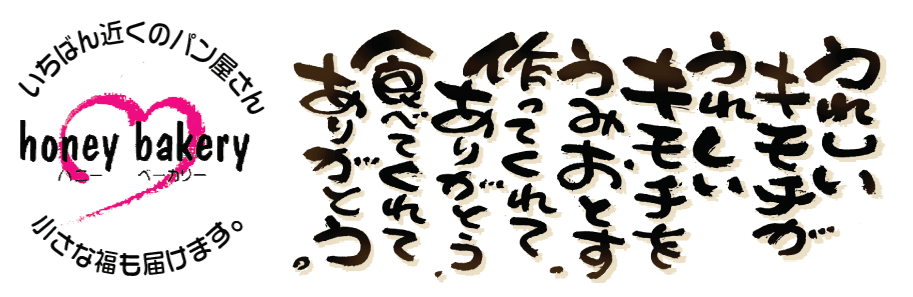 いちばん近くのパン屋さん
honey bakery
ハニー ベーカリー
小さな福も届けます。
うれしい
キモチが
うれしい
キモチを
うみおとす
作ってくれて
ありがとう。
食べてくれて
ありがとう。